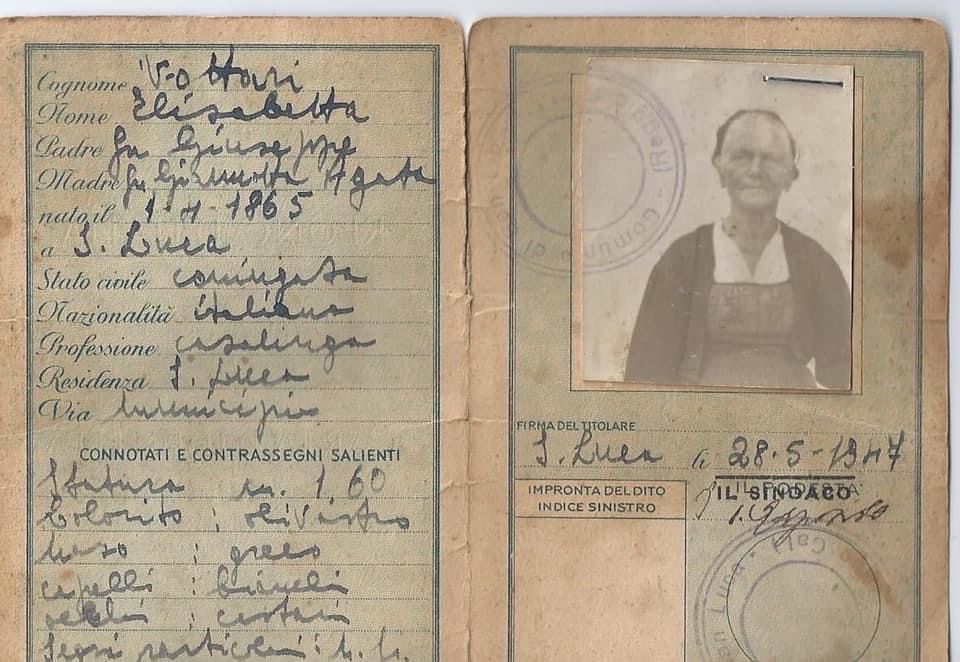 Cognome Vottari
Nome Elisabetta
Padre fu Giuseppe
Madre fu Giampaolo Agata
nato il 1-4-1865
a S. Luca
Stato civile coniugata
Nazionalità italiana
Professione casalinga
Residenza S. Luca
Via Municipio
CONNOTATI E CONTRASSEGNI SALIENTI
Statura m. 1,60
Colorito : olivastro
naso : greco
capelli :
occhi : castani
Segni particolari : n. n.
Comune di
FIRMA DEL TITOLARE
S. Luca li 28-5-1947
IMPRONTA DEL DITO
INDICE SINISTRO
IL PODESTÀ
IL SINDACO